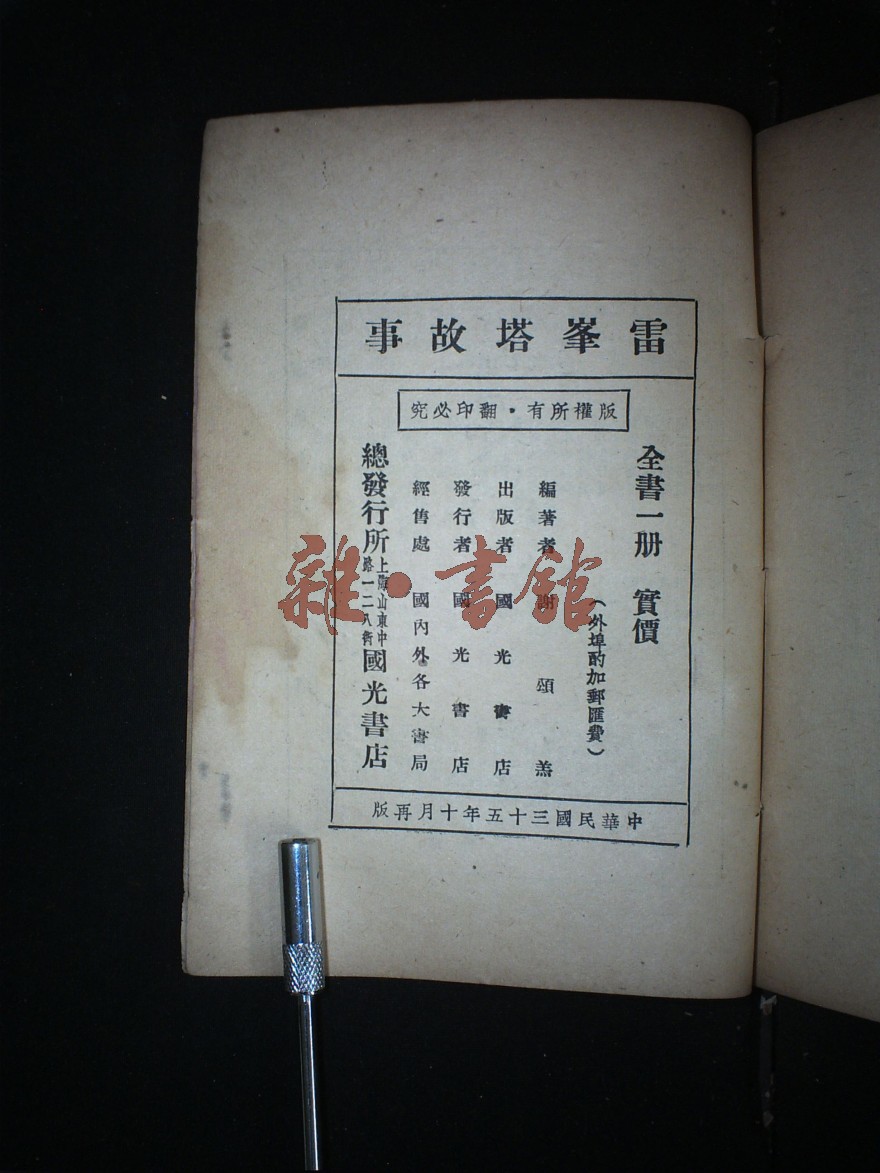 雷峯塔故事
版權所有·翻印必究
全書一册 實價
(外埠酌加郵匯費)
編著者 謝頌羔
出版者 國光書店
發行者 國光書店
經售處 國內外各大書局
總發行所 上海山東中路一二八衖 國光書店
中華民國三十五年十月再版
雜·書館